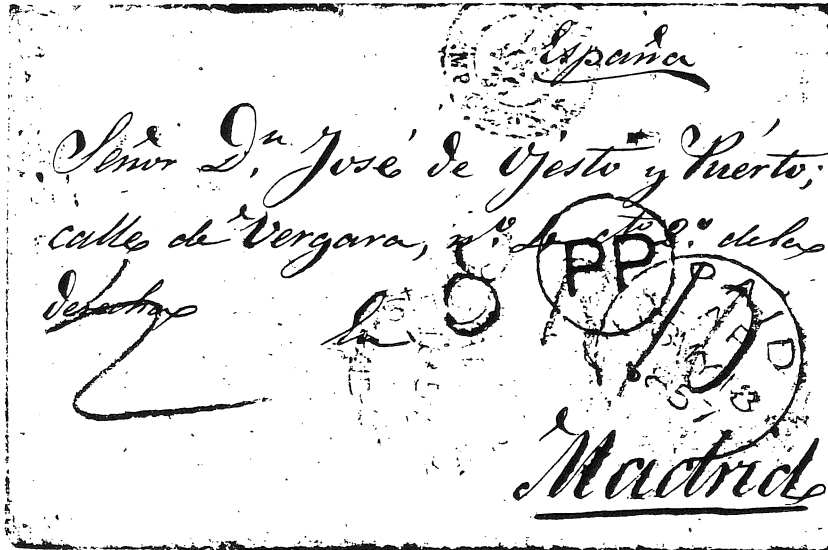 España
Señor Dn. José de Ojesto y Puerto;
calle de Vergara, nº. cto 2º. dela
derecha
la 8
PP
PAID
10
Madrid